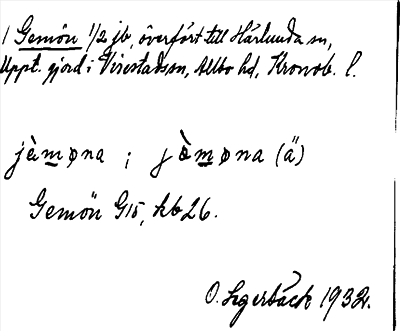 1 Gemön 1/2 jb, överfört till Härlunda sn,
Uppt. gjord i Virestads sn, Allbo hd, Kronob. l.
jèmøna ; jòmøna (ä)
Gemön G15, kb 26.
O. Lgerbäck 1932.